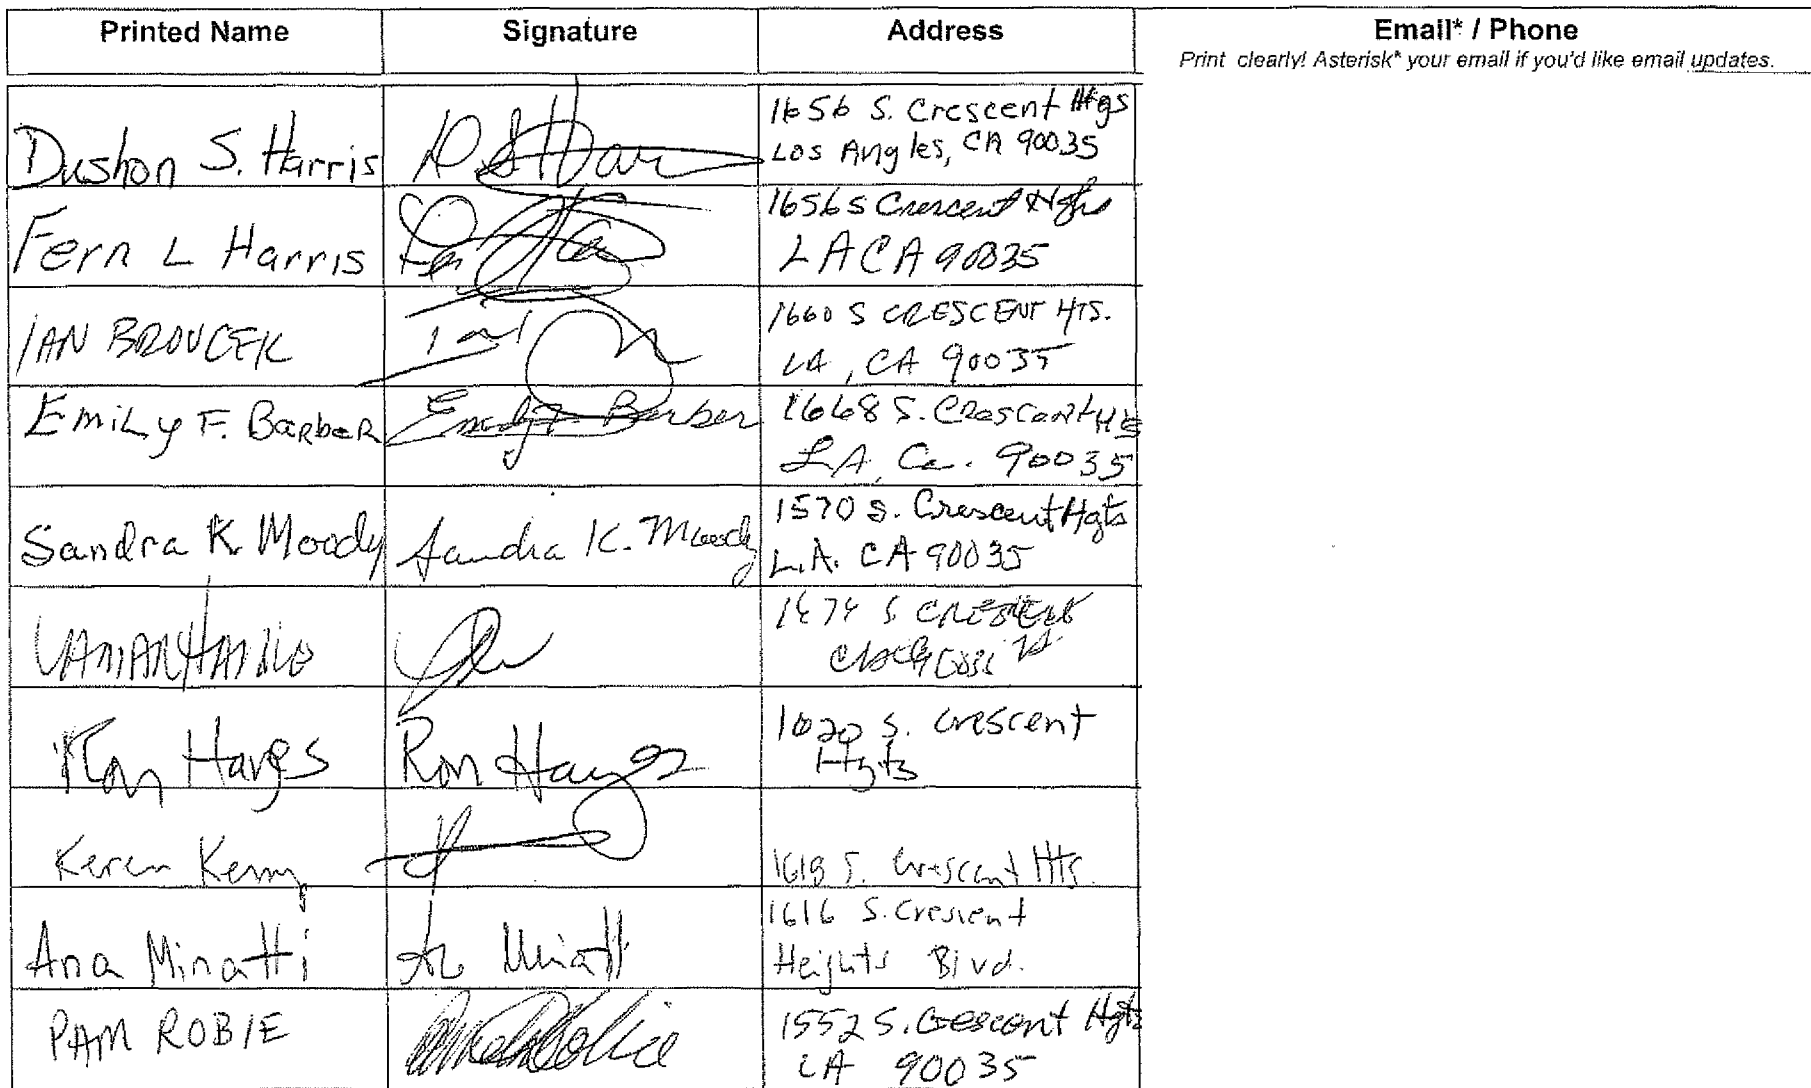 Printed Name Signature Address Email* / Phone
Print clearly! Asterisk* your email if you'd like email updates.
Dushon S. Harris
1656 S. Crescent Hgs
Los Angles, CA 90035
Fern L Harris
1656 S Crescent Hghs
LA CA 90035
IAN BROUCEK
1660 S CRESCENT HTS.
LA, CA 90035
Emily F. Barber Emily F. Barber 1668 S. Crescent Hts
LA, Ca. 90035
Sandra K. Moody Sandra K. Moody 1570 S. Crescent Hgts
L.A. CA 90035
S CRESCENT
Ron Hayes Ron Hayes
S. Crescent
Hgts
Keren Kenny 1618 S. Crescent Hts.
Ana Minatti
1616 S. Crescent
Heights Blvd.
PAM ROBIE
1552 S. Crescent Hgts
LA 90035